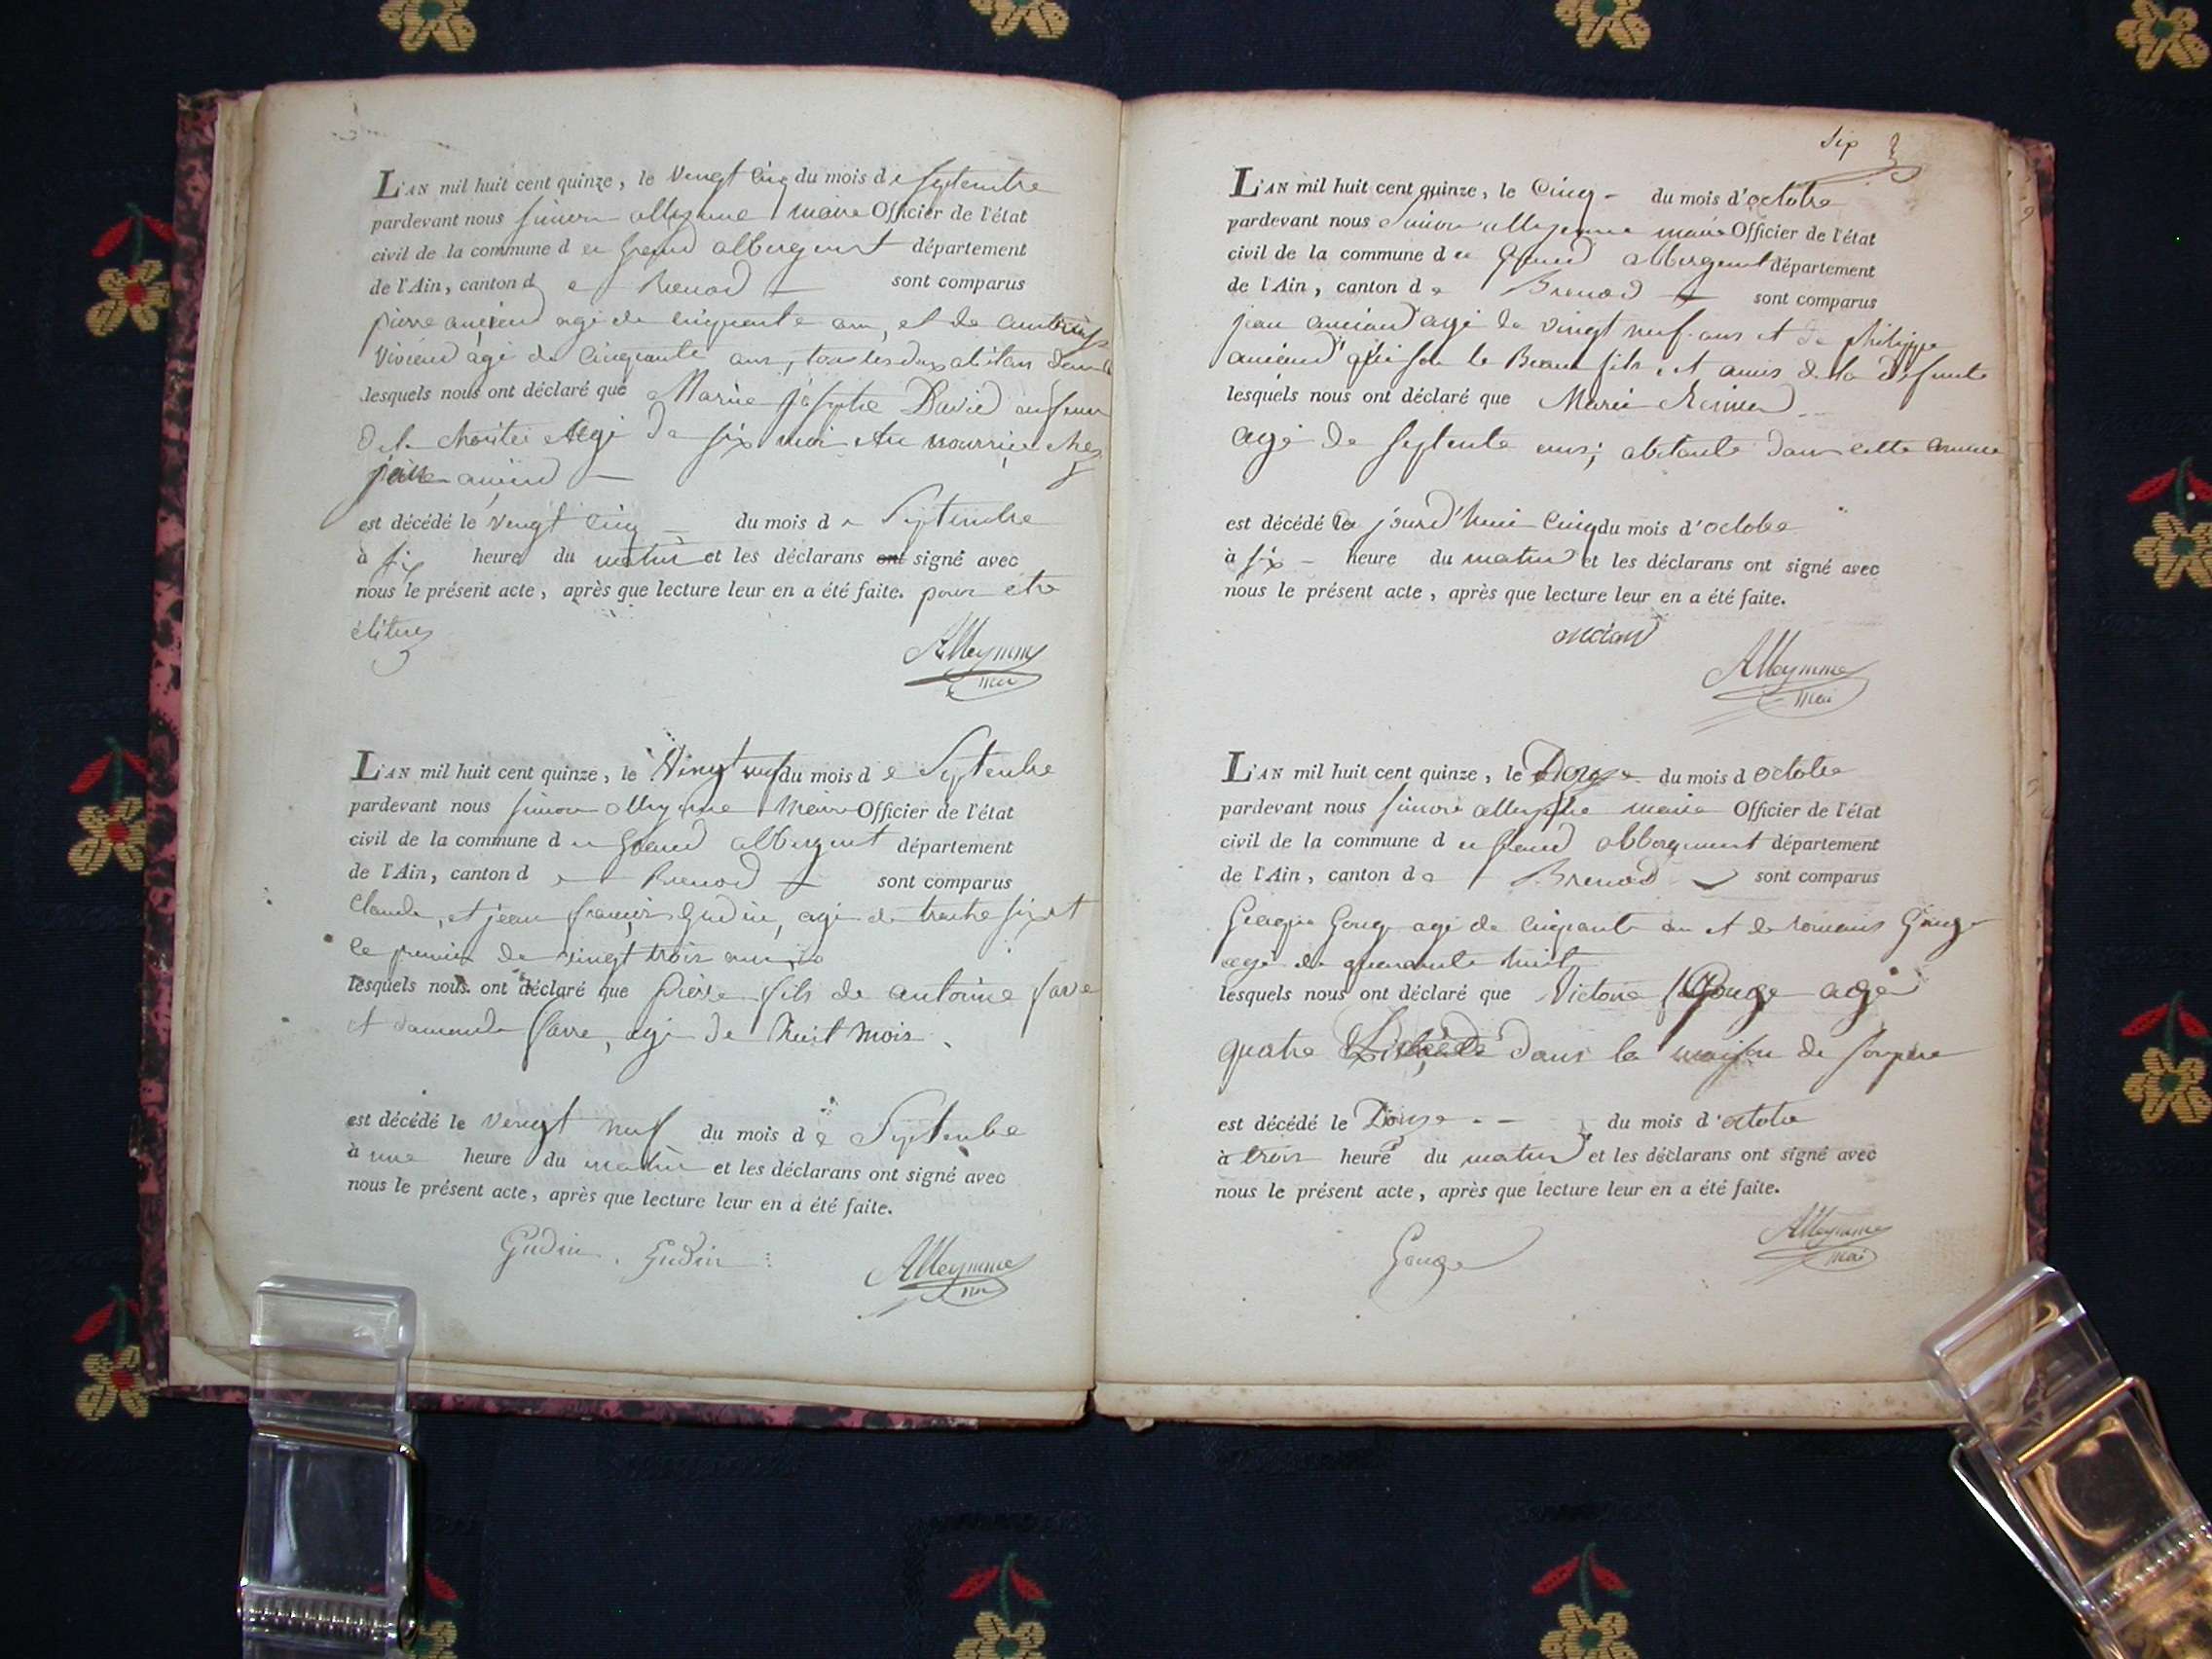 L'AN mil huit cent quinze, le vengt cinq du mois de septembre
pardevant nous simon alleymme maire Officier de l'état
civil de la commune d u grand abbergent département
de l'Ain, canton d e Brenod sont comparus
pierre anciend agé de cinquante ans, et de
Viviend agé de cinquante ans, tous les deux abitans
lesquels nous ont déclaré que Marie josephe David enfans
de la charité agé de six moi en nourrice ches
anciend
est décédé le vengt cinq du mois d e Septembre
à six heure du matin et les déclarans ont signé avec
nous le présent acte, après que lecture leur en a été faite. pour etre
Alleymme
mai
L'AN mil huit cent quinze, le Vingt neuf du mois d e Septembre
pardevant nous simon alleymme Maire Officier de l'état
civil de la commune d u grand abbergent département
de l'Ain, canton d e Brenod sont comparus
Claude, et jean françois Gudin, agé de trente six et
le premier de vingt trois ans
lesquels nous ont déclaré que pierre fils de antoine favre
et favre, agé de huit mois
est décédé le vengt neuf du mois d e Septembre
à une heure du matin et les déclarans ont signé avec
nous le présent acte, après que lecture leur en a été faite.
Gudin. Gudin
Alleymme
mai
Six
L'AN mil huit cent quinze, le Cinq du mois d'octobre
pardevant nous Simon alleymme maire Officier de l'état
civil de la commune d u Grand abbergent département
de l'Ain, canton d e Brenod sont comparus
jean anciand agé de vingt neuf ans et de philippe
anciand qui son le Beau fils et amis de la defunte
lesquels nous ont déclaré que Marie
agé de septente ans, abitante dans cette commune
est décédé le jourd'hui cinq du mois d'octobre
à six heure du matin et les déclarans ont signé avec
nous le présent acte, après que lecture leur en a été faite.
anciand
Alleymme
mai
L'AN mil huit cent quinze, le Douze du mois d octobre
pardevant nous simon alleymme maire Officier de l'état
civil de la commune d u grand abbergement département
de l'Ain, canton d e Brenod sont comparus
Gouge agé de cinquante an et de romans Gouge
agé de quarante huit
lesquels nous ont déclaré que Victoire Gouge agé
quatre dans la maison de son père
est décédé le Douze du mois d'octobre
à trois heure du matin et les déclarans ont signé avec
nous le présent acte, après que lecture leur en a été faite.
Gouge
Alleymme
mai